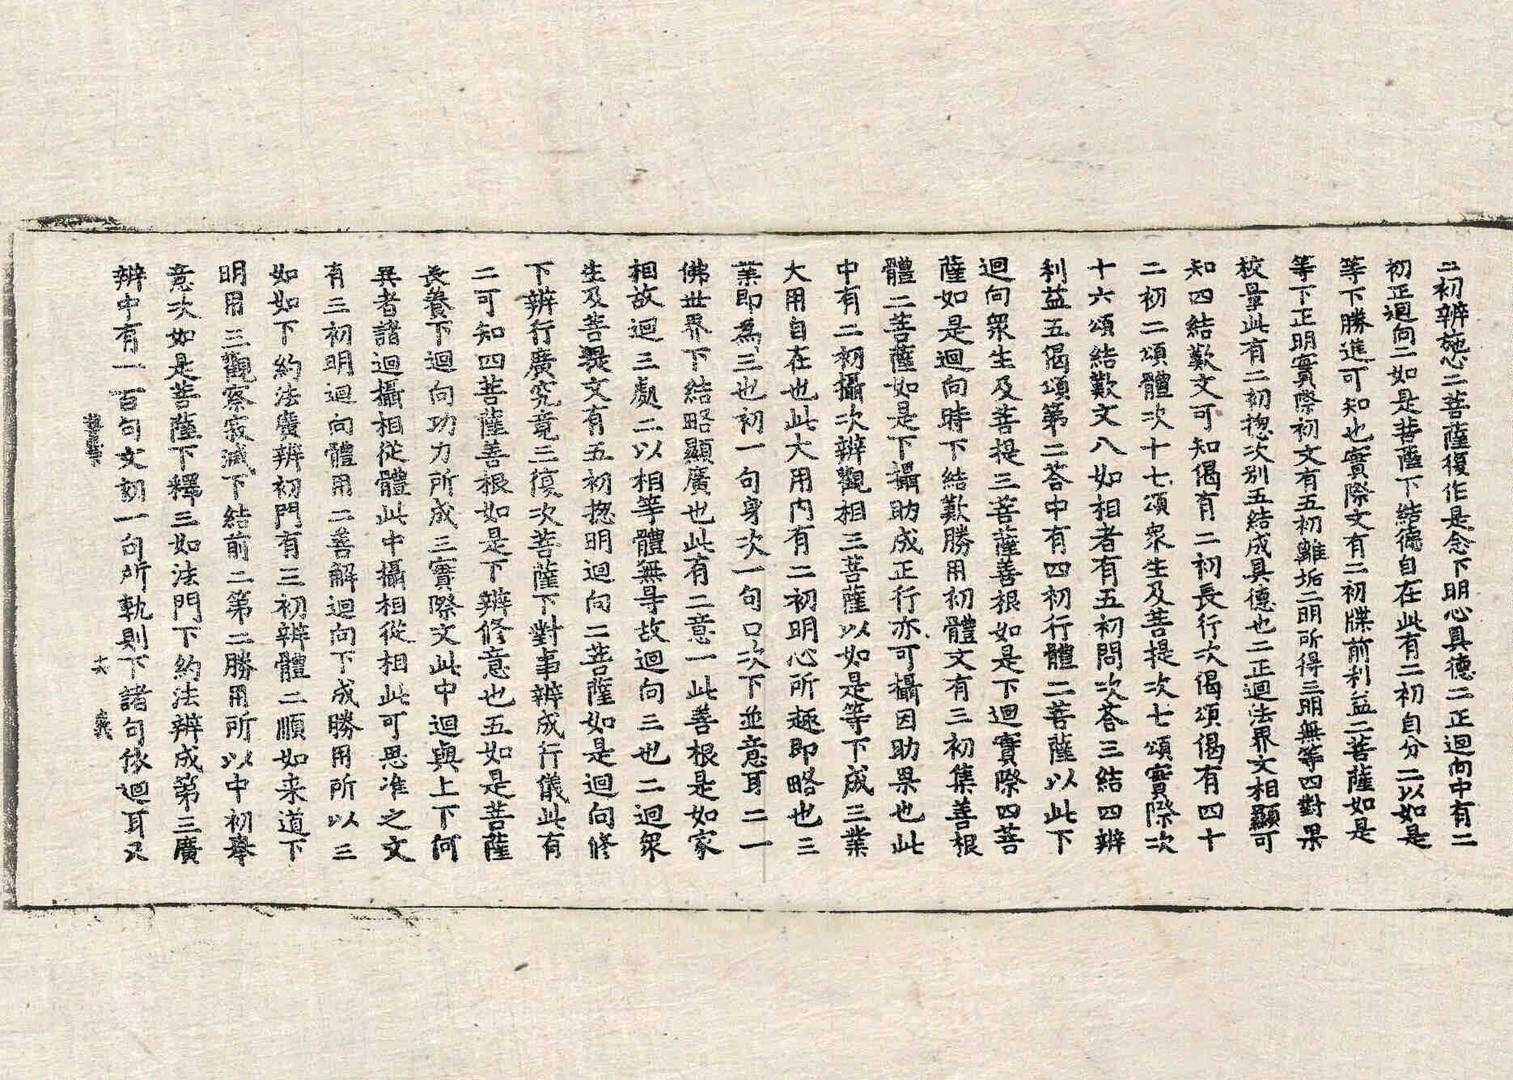 二初辨施心二菩薩復作是念下明心具德二正迴向中有二
初正迴向二如是菩薩下結德自在此有二初自分二以如是
等下勝進可知也實際文有二初牒前利益二菩薩如是
等下正明實際初文有五初離垢二明所得三明無等四對果
校量此有二初揔次別五結成具德也二正迴法界文相顯可
知四結歎文可知偈有二初長行次偈頌偈有四十
二初二頌體次十七頌衆生及菩提次七頌實際次
十六頌結歎文八如相者有五初問次荅三結四辨
利益五偈頌第二荅中有四初行體二菩薩以此下
迴向衆生及菩提三菩薩善根如是下迴實際四菩
薩如是迴向時下結歎勝用初體文有三初集善根
體二菩薩如是下攝助成正行亦可攝因助果也此
中有二初攝次辨觀相三菩薩以如是等下成三業
大用自在也此大用内有二初明心所趣即略也三
業即為三也初一句身次一句口次下並意耳二一
佛世界下結略顯廣也此有二意一此善根是如家
相故迴三處二以相等體無㝵故迴向三也二迴衆
生及菩提文有五初揔明迴向二菩薩如是迴向修
下辨行廣究竟三復次菩薩下對事辨成行儀此有
二可知四菩薩善根如是下辨修意也五如是菩薩
長養下迴向功力所成三實際文此中迴與上下何
異者諸迴攝相從體此中攝相從相此可思准之文
有三初明迴向體用二善解迴向下成勝用所以三
如如下約法廣辨初門有三初辨體二順如来道下
明用三觀察寂滅下結前二第二勝用所以中初舉
意次如是菩薩下釋三如法門下約法辨成第三廣
辨中有一百句文初一句所軌則下諸句依迴耳又
十六